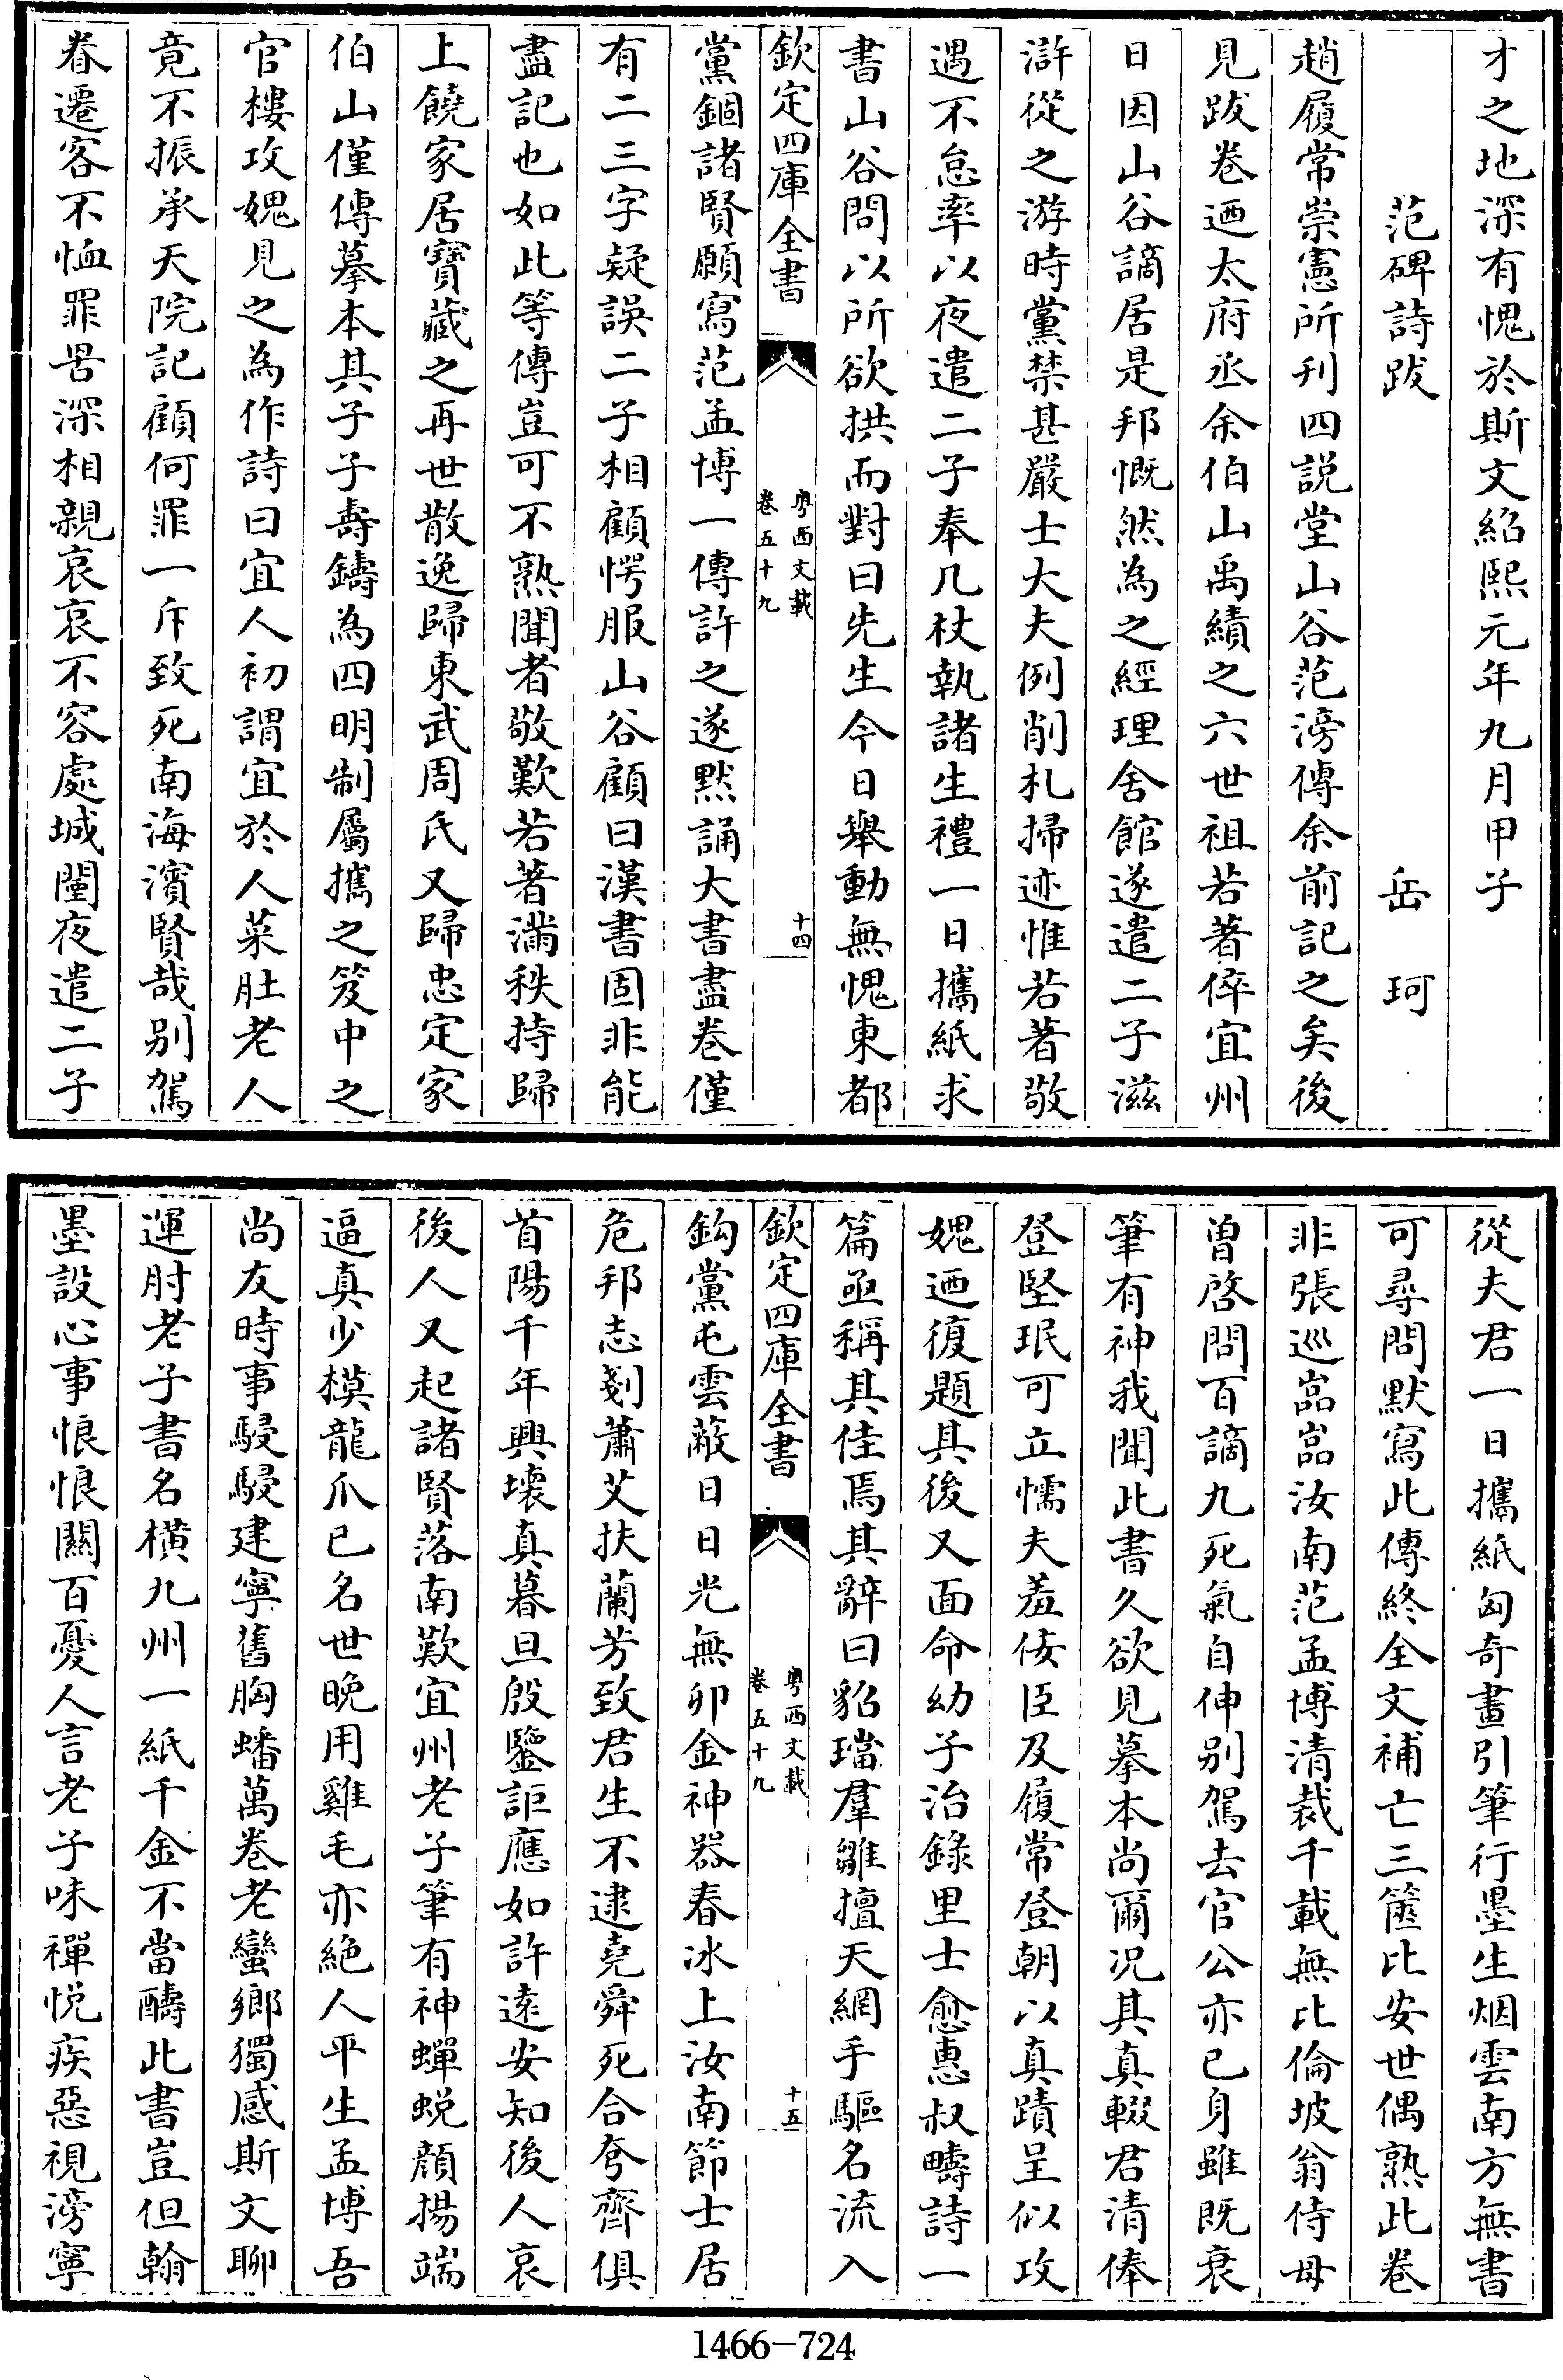 才之地深有愧於斯文紹熙元年九月甲子
范碑詩跋　岳珂
趙履常崇憲所刋四説堂山谷范滂傳余前記之矣後
見跋卷迺太府丞余伯山禹績之六世祖若著倅宜州
日因山谷謫居是邦慨然為之經理舍館遂遣二子滋
滸從之游時黨禁甚嚴士大夫例削札掃迹惟若著敬
遇不怠率以夜遣二子奉几杖執諸生禮一日攜紙求
書山谷問以所欲拱而對曰先生今日舉動無愧東都
欽定四庫全書
粤西文載
卷五十九
十四
黨錮諸賢願寫范孟博一傳許之遂黙誦大書盡卷僅
有二三字疑誤二子相顧愕服山谷顧曰漢書固非能
盡記也如此等傳豈可不熟聞者敬歎若著滿秩持歸
上饒家居寶藏之再世散逸歸東武周氏又歸忠定家
伯山僅傳摹本其子子壽鑄為四明制屬攜之笈中之
官樓攻媿見之為作詩曰宜人初謂宜於人菜肚老人
竟不振承天院記顧何罪一斥致死南海濱賢哉别駕
眷遷客不恤罪罟深相親哀哀不容處城闉夜遣二子
從夫君一日攜紙匈奇畫引筆行墨生烟雲南方無書
可尋問默寫此傳終全文補亡三篋比安世偶熟此卷
非張巡嵓嵓汝南范孟博清裁千載無比倫坡翁侍母
曽啓問百謫九死氣自伸别駕去官公亦已身雖既衰
筆有神我聞此書久欲見摹本尚爾况其真輟君清俸
登堅珉可立懦夫羞佞臣及履常登朝以真蹟呈似攻
媿迺復題其後又面命幼子治錄里士愈惠叔疇詩一
篇亟稱其佳焉其辭曰貂璫羣雛擅天網手驅名流入
欽定四庫全書
粤西文載
卷五十九
十五
鈎黨屯雲蔽日日光無卯金神器春冰上汝南節士居
危邦志剗蕭艾扶蘭芳致君生不逮堯舜死合夸齊俱
首陽千年興壊真暮旦殷鑒詎應如許遠安知後人哀
後人又起諸賢落南歎宜州老子筆有神蟬蜕顔揚端
逼真少模龍爪已名世晚用雞毛亦絶人平生孟博吾
尚友時事駸駸建寧舊胸蟠萬卷老蠻鄉獨感斯文聊
運肘老子書名横九州一紙千金不當醻此書豈但翰
墨設心事悢悢闗百憂人言老子味禪悦疾惡視滂寧
1466-724